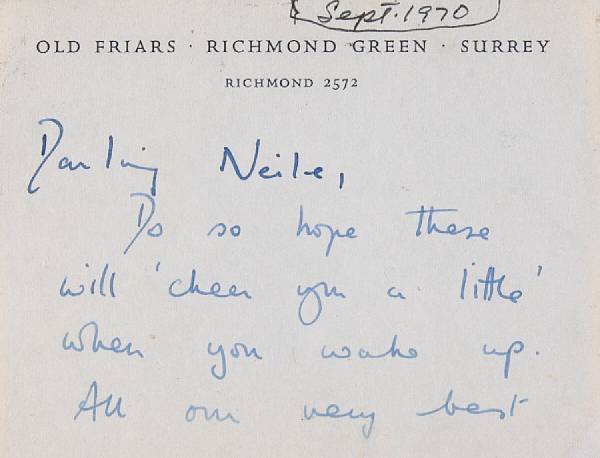 Sept. 1970
OLD FRIARS · RICHMOND GREEN · SURREY
RICHMOND 2572
Darling Neile,
Do so hope these
will 'cheer you a little'
when you wake up.
All our very best